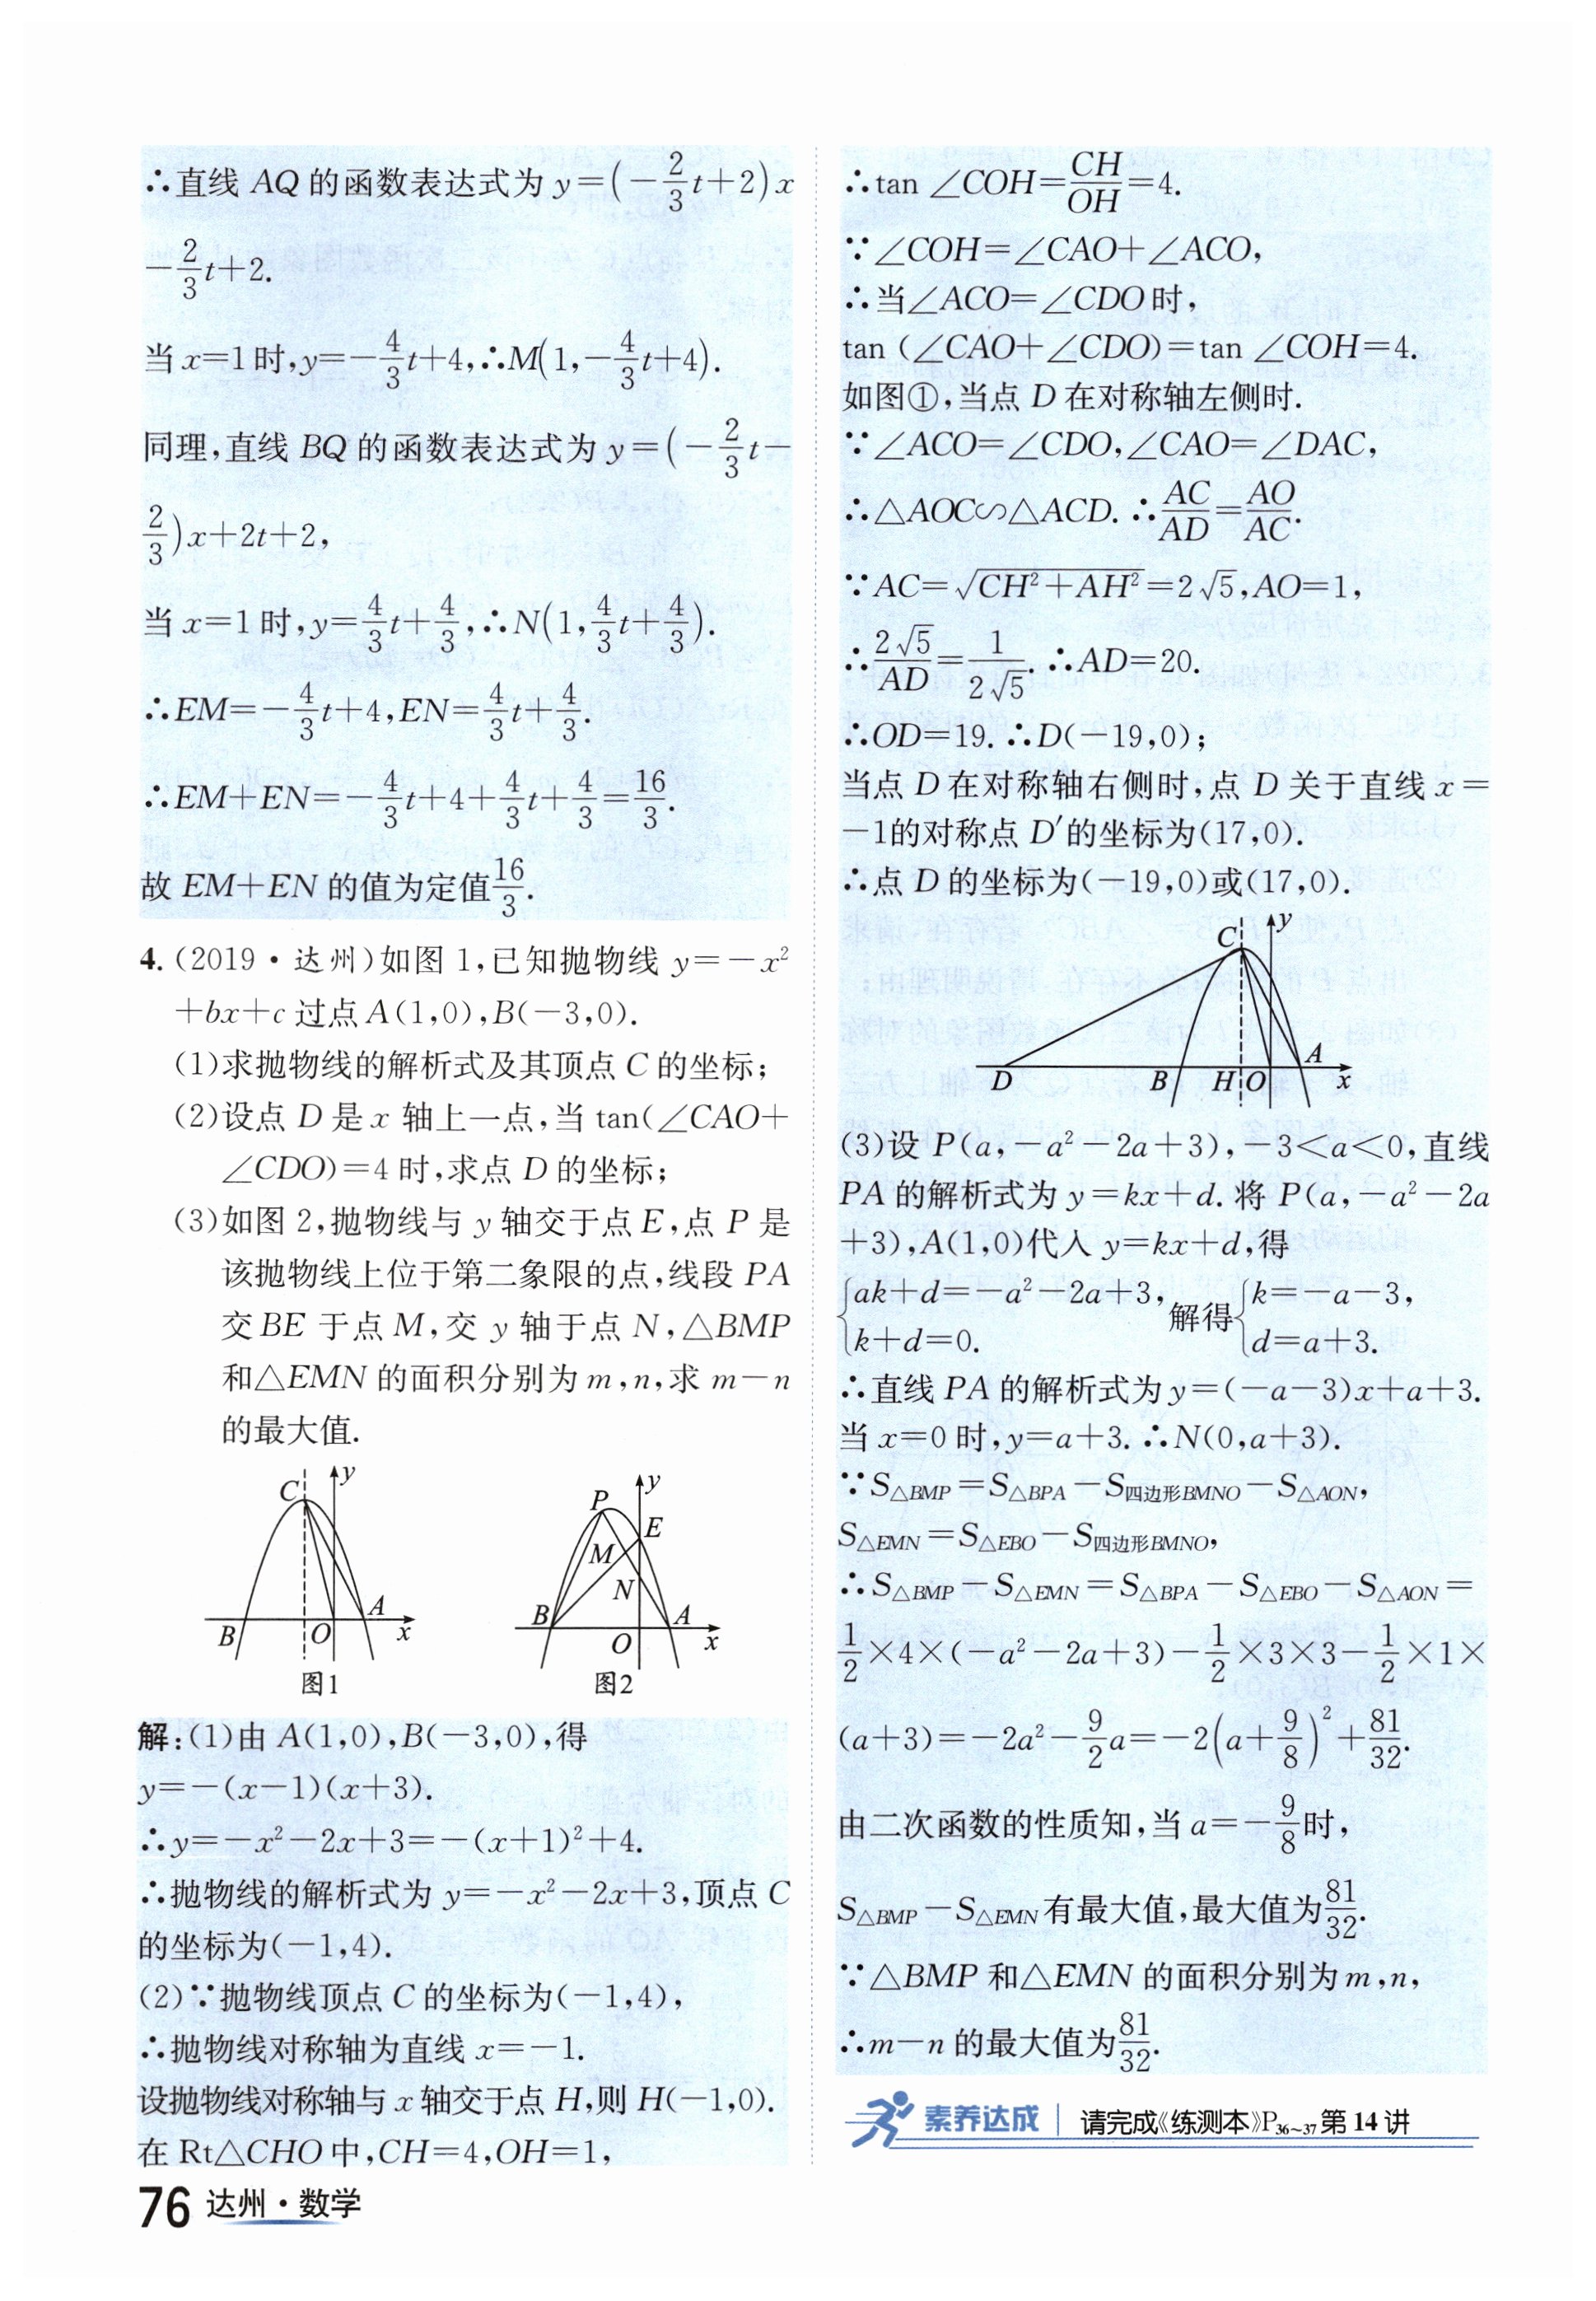 ∴直线 AQ 的函数表达式为 y=(-2/3t+2)x
-2/3t+2.
当 x=1 时,y=-4/3t+4,∴M(1,-4/3t+4).
同理,直线 BQ 的函数表达式为 y=(-2/3t-
2/3)x+2t+2,
当 x=1 时,y=4/3t+4/3,∴N(1,4/3t+4/3).
∴EM=-4/3t+4,EN=4/3t+4/3.
∴EM+EN=-4/3t+4+4/3t+4/3=16/3.
故 EM+EN 的值为定值16/3.
4.(2019·达州)如图 1,已知抛物线 y=-x²
+bx+c 过点 A(1,0),B(-3,0).
(1)求抛物线的解析式及其顶点 C 的坐标;
(2)设点 D 是 x 轴上一点,当 tan(∠CAO+
∠CDO)=4 时,求点 D 的坐标;
(3)如图 2,抛物线与 y 轴交于点 E,点 P 是
该抛物线上位于第二象限的点,线段 PA
交 BE 于点 M,交 y 轴于点 N,△BMP
和△EMN 的面积分别为 m,n,求 m-n
的最大值.
C y
B O A x
图1
P y
E
M
N
B O A x
图2
解:(1)由 A(1,0),B(-3,0),得
y=-(x-1)(x+3).
∴y=-x²-2x+3=-(x+1)²+4.
∴抛物线的解析式为 y=-x²-2x+3,顶点 C
的坐标为(-1,4).
(2)∵抛物线顶点 C 的坐标为(-1,4),
∴抛物线对称轴为直线 x=-1.
设抛物线对称轴与 x 轴交于点 H,则 H(-1,0).
在 Rt△CHO 中,CH=4,OH=1,
∴tan ∠COH=CH/OH=4.
∵∠COH=∠CAO+∠ACO,
∴当∠ACO=∠CDO 时,
tan (∠CAO+∠CDO)=tan ∠COH=4.
如图①,当点 D 在对称轴左侧时.
∵∠ACO=∠CDO,∠CAO=∠DAC,
∴△AOC∽△ACD. ∴AC/AD=AO/AC.
∵AC=√(CH²+AH²)=2√5,AO=1,
∴2√5/AD=1/2√5. ∴AD=20.
∴OD=19. ∴D(-19,0);
当点 D 在对称轴右侧时,点 D 关于直线 x=
-1的对称点 D′的坐标为(17,0).
∴点 D 的坐标为(-19,0)或(17,0).
C y
D B H O A x
(3)设 P(a,-a²-2a+3),-3<a<0,直线
PA 的解析式为 y=kx+d. 将 P(a,-a²-2a
+3),A(1,0)代入 y=kx+d,得
{ak+d=-a²-2a+3, k+d=0. 解得{k=-a-3, d=a+3.
∴直线 PA 的解析式为 y=(-a-3)x+a+3.
当 x=0 时,y=a+3. ∴N(0,a+3).
∵S△BMP=S△BPA-S四边形BMNO-S△AON,
S△EMN=S△EBO-S四边形BMNO,
∴S△BMP-S△EMN=S△BPA-S△EBO-S△AON=
1/2×4×(-a²-2a+3)-1/2×3×3-1/2×1×
(a+3)=-2a²-9/2a=-2(a+9/8)²+81/32.
由二次函数的性质知,当 a=-9/8时,
S△BMP-S△EMN有最大值,最大值为81/32.
∵△BMP 和△EMN 的面积分别为 m,n,
∴m-n 的最大值为81/32.
素养达成 请完成《练测本》P36~37第 14 讲
76 达州·数学